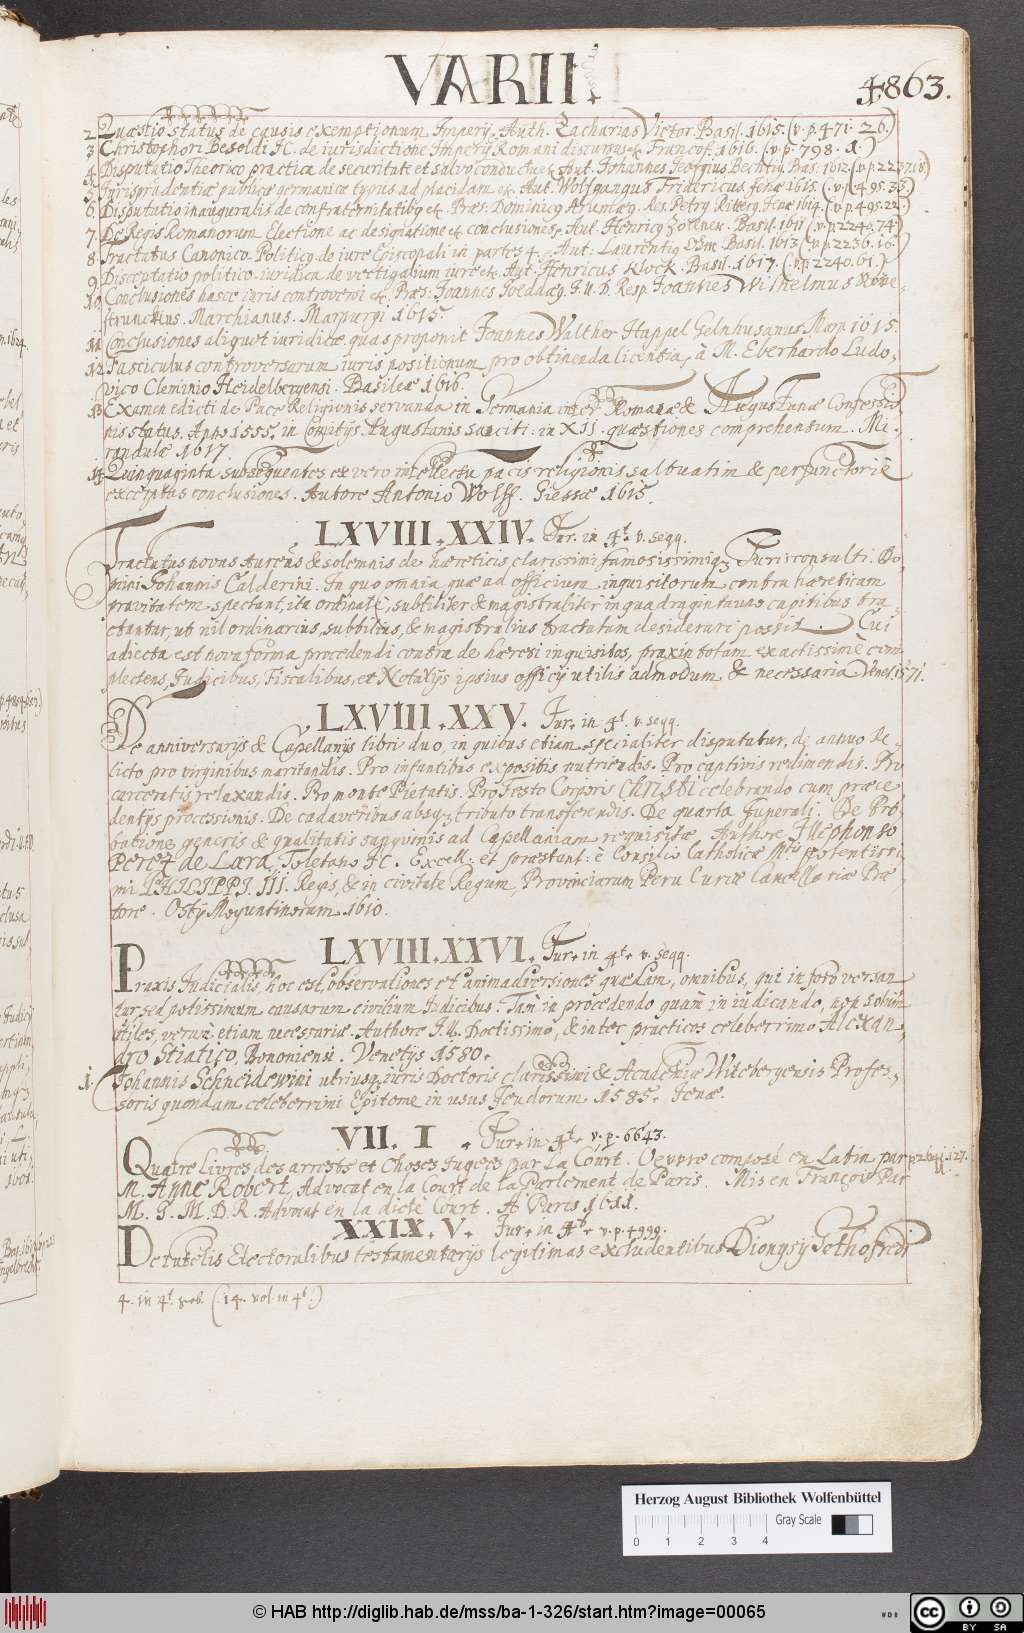 VARII.
4863.
2 Quæstio status de causis exemptionum Imperij. Auth. Zacharias Victor. Basil. 1615. (v. p. 471. 26.)
3 Christophori Besoldi JC. de iurisdictione Imperij Romani discursus etc. Francof. 1616. (v. p. 798. 1.)
4. Disputatio Theorico practica de securitate et salvo conductu etc. Aut. Johannes Georgius Bechtig. Bas. 1612. (v. p. 2237. 18.)
5. Jurisprudentiæ publicæ germanicæ typus ad placidam etc. Aut. Wolfgangus Fridericus. Jenæ 1615. (v. p. 495. 33.)
6. Disputatio inauguralis de confraternitatibq etc. Præs: Dominicq Arumæq. Res. Petrq Ritterq. Jenæ 1614. (v. p. 495. 22.)
7. De Regis Romanorum Electione ac designatione etc. conclusiones. Aut. Henricq Zöllner. Basil. 1611 (v. p. 2249. 74.)
8. Tractatus Canonico. Politicq de iure Episcopali in partes 4. Aut. Laurentiq Basil. 1613. (v. p. 2236. 16.)
9. Disceptatio politico-iuridica de vectigalium iure etc. Aut. Henricus Klock. Basil. 1617. (v. p. 2240. 61.)
10. Conclusiones hasce iuris controversi etc. Præs: Joannes Goeddæq J. u. D. Resp. Joannes Wilhelmus Növe-
strunckius. Marchianus. Marpurgi 1615.
11 Conclusiones aliquot iuridicæ quas proponit Joannes Walther Happel Gelnhusanus Marp. 1615.
12 Fasciculus controversarum iuris positionum pro obtinenda licentia, à M. Eberhardo Ludo-
vico Cleminio Heidelbergensi. Basileæ 1616.
13 Examen edicti de Pace Religionis servanda in Germania inter Romanæ & Augustanæ Confessio-
nis status. Anno 1555. in Comitijs Augustanis sanciti: in XII. quæstiones comprehensum. Mi-
randulæ 1617.
14. Quinquaginta subsequentes ex vero intellectu pacis religionis saltuatim & perfunctoriè
exceptas conclusiones. Autore Antonio Wolff. Giessæ 1615.
LXVIII. XXIV. Jur. in 4t. v. seqq.
Tractatus novus Aureus & solemnis de hæreticis clarissimi famosissimiq Jurisconsulti. Do-
mini Johannis Calderini. In quo omnia, quæ ad officium inquisitorum contra hæreticam
pravitatem spectant, ita ordinatè, subtiliter & magistraliter in quadraginta uno capitibus tra-
ctantur, ut nil ordinarius, subtilius, & magistralius tractatum desiderari possit. Cui
adiecta est nova forma procedendi contra de hæresi inquisitos, praxin totam exactissimè com-
plectens, Judicibus, Fiscalibus, et Notarijs ipsius officij utilis admodum & necessaria Venet. 1571.
LXVIII. XXV. Jur. in 4t. v. seqq.
De anniversarijs & Capellanijs libri duo, in quibus etiam specialiter disputatur, de annuo Re-
licto pro virginibus maritandis. Pro infantibus expositis nutriendis. Pro captivis redimendis. Pro
carceratis relaxandis. Pro monte Pietatis. Pro Festo Corporis CHRISTI celebrando cum præce-
dentijs processionis. De cadaveribus absq tributo transferendis. De quarta Funerali. De Pro-
batione generis & qualitatis sanguinis ad Capellaniam requisitæ, Authore Illephonso
Perez de Lara, Toletano JC. Excell. et præstant. è Consilio Catholicæ Mtis potentissi-
mi PHILIPPI. III. Regis, & in civitate Regum, Provinciarum Peru Curiæ Cancellariæ Præ-
tore. Ostij Moguntinorum 1610.
LXVIII. XXVI. Jur. in 4t. v. seqq.
Praxis Judicialis, hoc est, observationes et animadversiones quædam, omnibus, qui in foro versan-
tur, sed potissimum causarum civilium Judicibus. Tam in procedendo quam in iudicando, non solum
utiles, verum etiam necessariæ. Authore J. U. Doctissimo, & inter practicos celeberrimo Alexan-
dro Stiatico, Bononiensi. Venetijs 1580.
1. Johannis Schneidewini utriusq iuris Doctoris clarissimi & Academiæ Witebergensis Profes-
soris quondam celeberrimi Epitome in usus Feudorum 1585. Jenæ.
VII. I. Jur. in 4t. v. p. 6643.
Quatre livres des arrests et Choses Jugees par La Court. Oeuvre composé en Latin par
M. Anne Robert, Advocat en la Court de la Parlement de Paris. Mis en François Par
M. G. M. D. R. Advocat en la dicte Court. A Paris 1611.
XXIX. V. Jur. in 4to. v. p. 4999.
De tutelis Electoralibus testamentarijs legitimas excludentibus Dionysij Gothofredi
4. in 4t. seqb. (14. vol. in 4t.)
Herzog August Bibliothek Wolfenbüttel
Gray Scale
0 1 2 3 4
© HAB http://diglib.hab.de/mss/ba-1-326/start.htm?image=00065
WDB
cc BY SA